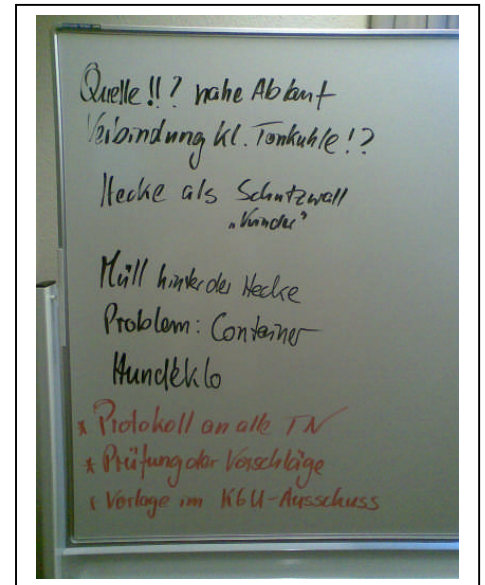 Quelle !! ? nahe Ablauf
Verbindung kl. Tonkuhle !?
Hecke als Schutzwall
Müll hinter der Hecke
Problem: Container
Hundeklo
* Protokoll an alle TN
* Prüfung der Vorschläge
* Vorlage im KBU-Ausschuss